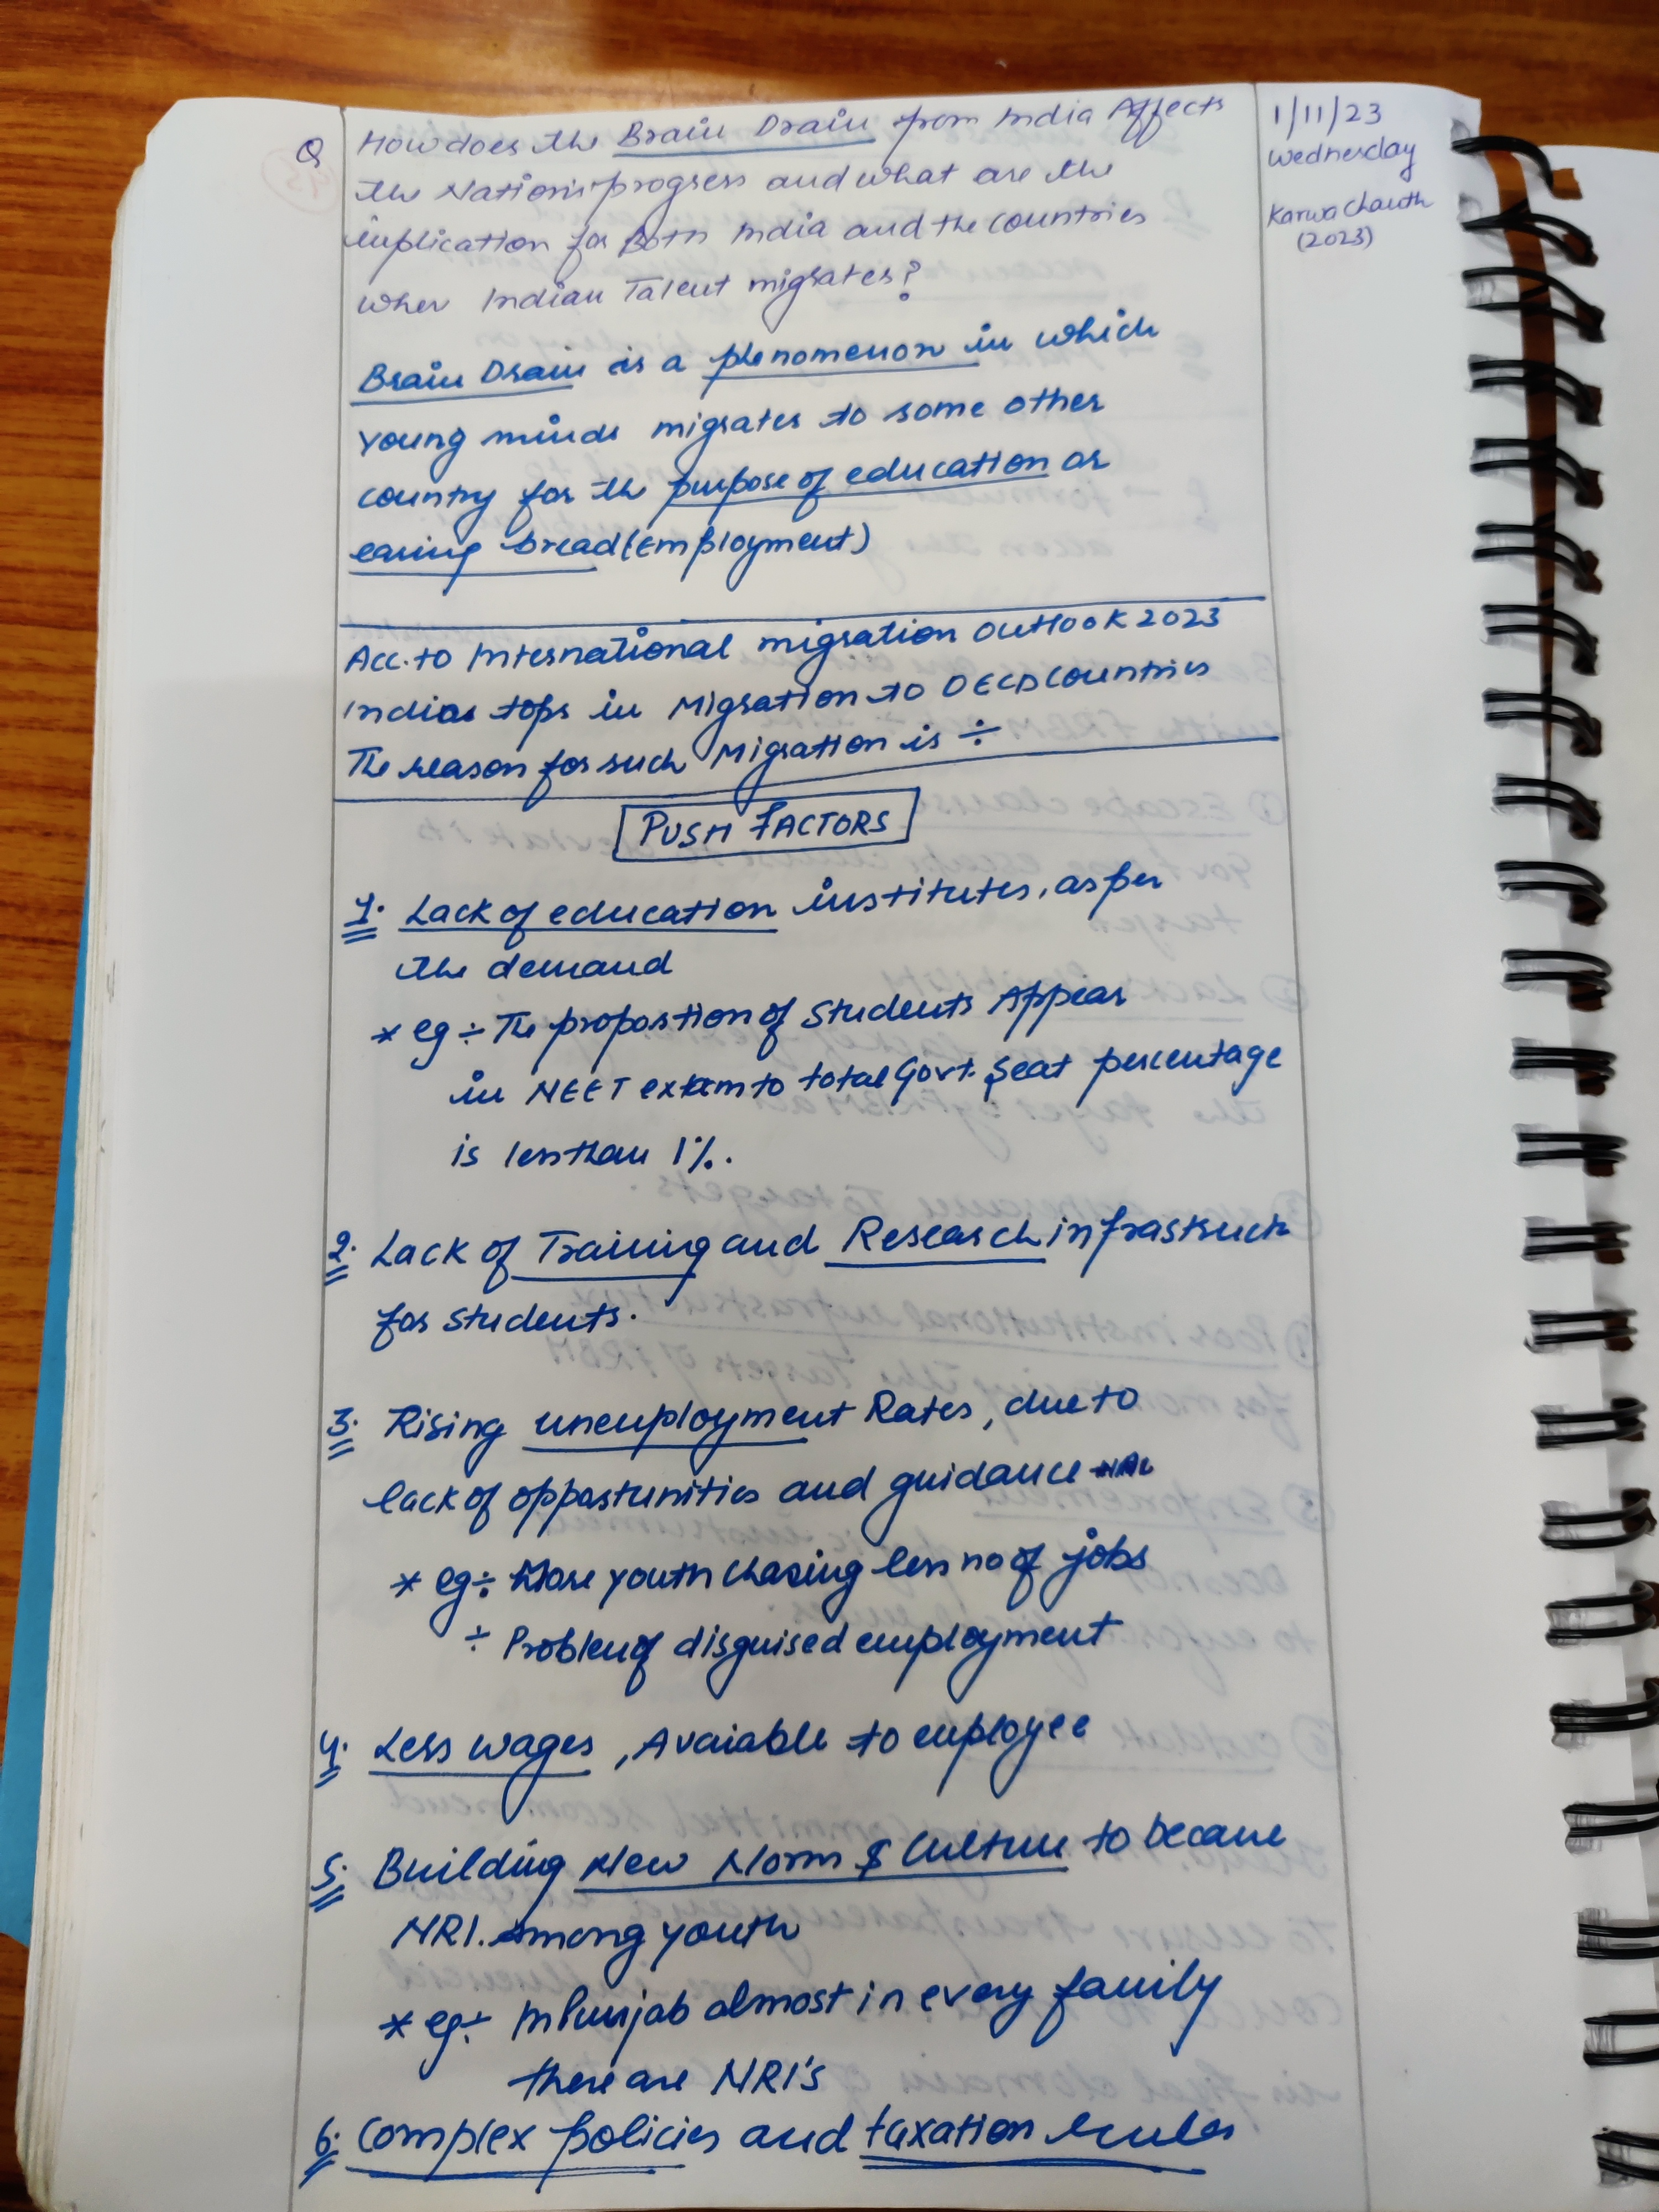 Q How does the Brain Drain from India Affects
the Nation's progress and what are the
implication for Both India and the countries
wher Indian Talent migrates?
1/11/23
Wednesday
Karwa Chauth
(2023)
Brain Drain is a phenomenon in which
Young minds migrates to some other
country for the purpose of education or
earing bread (Employment)
Acc. to International migration Outlook 2023
Indias tops in Migration to OECD countries
The reason for such Migration is ÷
PUSH FACTORS
1. Lack of education institutes, as per
the demand
* eg ÷ The proportion of Students Appear
in NEET exam to total Govt. Seat percentage
is less than 1%.
2. Lack of Training and Research infrastruck
for students.
3. Rising unemployment Rates, due to
lack of opportunities and guidance
* eg ÷ More youth chasing less no of jobs
÷ Problem of disguised employment
4. Less wages, Avaiable to employee
5. Building New Norm & Culture to became
NRI. Among youth
* eg ÷ In Punjab almost in every family
there are NRI's
6. Complex policies and taxation rules